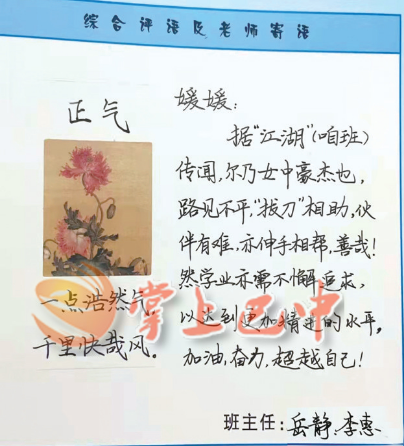 综合评语及老师寄语
正气
一点浩然气
千里快哉风。
媛媛：
据“江湖”(咱班)
传闻，尔乃女中豪杰也，
路见不平，“拔刀”相助，伙
伴有难，亦伸手相帮，善哉！
然学业亦需不懈追求，
以达到更加精进的水平。
加油，奋力，超越自己！
班主任：岳静、李惠
掌上巴中